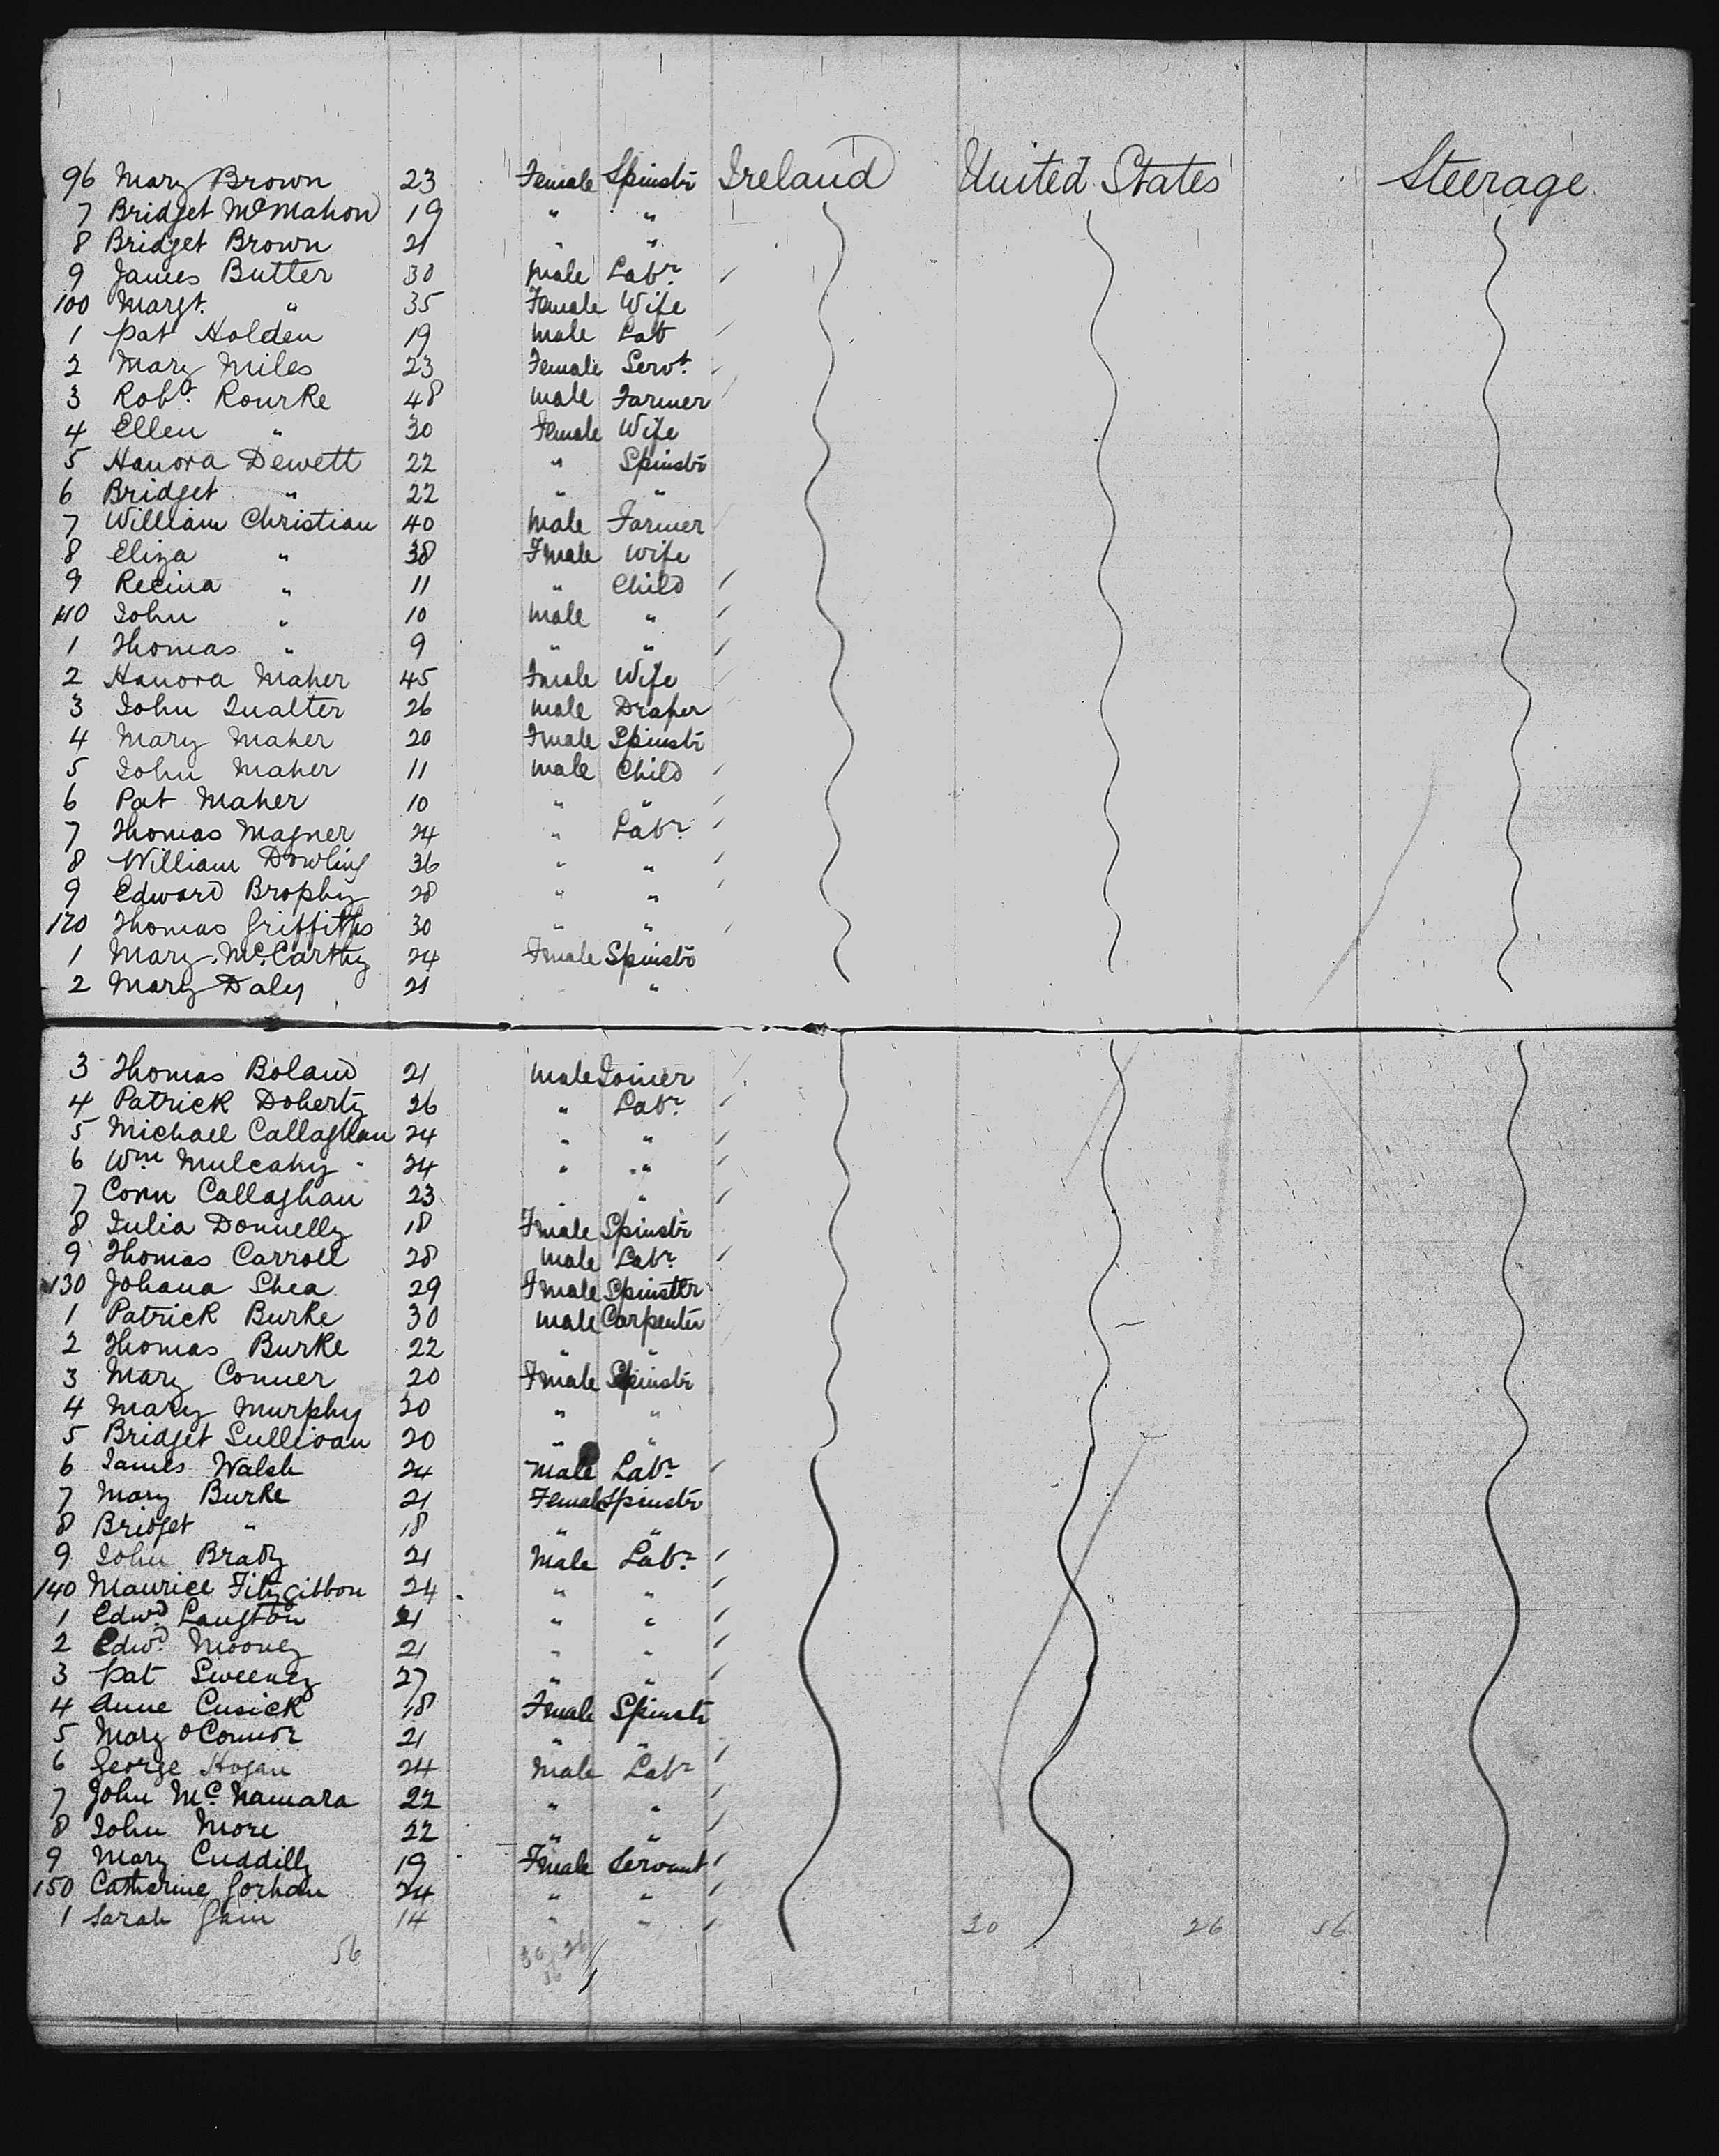 96 Mary Brown 23 Female Spinstr Ireland United States Steerage
7 Bridget McMahon 19 " "
8 Bridget Brown 21 " "
9 James Butter 30 Male Labr
100 Margt. " 35 Female Wife
1 Pat Holden 19 Male Lab
2 Mary Miles 23 Female Servt.
3 Robt. Rourke 48 Male Farmer
4 Ellen " 30 Female Wife
5 Hanora Dewett 22 " Spinstr
6 Bridget " 22 " "
7 William Christian 40 Male Farmer
8 Eliza " 38 Fmale Wife
9 Recina " 11 " Child
110 John " 10 Male "
1 Thomas " 9 " "
2 Hanora Maher 45 Fmale Wife
3 John Qualter 26 Male Draper
4 Mary Maher 20 Fmale Spinstr
5 John Maher 11 Male Child
6 Pat Maher 10 " "
7 Thomas Magner 24 " Labr
8 William Dowling 36 " "
9 Edward Brophy 28 " "
120 Thomas Griffiths 30 " "
1 Mary McCarthy 24 Fmale Spinstr
2 Mary Daly 21 " "
3 Thomas Boland 21 Male Joiner
4 Patrick Doherty 26 " Labr
5 Michael Callaghan 24 " "
6 Wm Mulcahy 24 " "
7 Corn Callaghan 23 " "
8 Julia Donnelly 18 Fmale Spinstr
9 Thomas Carroll 28 Male Labr
130 Johana Shea 29 Fmale Spinster
1 Patrick Burke 30 Male Carpenter
2 Thomas Burke 22 " "
3 Mary Conner 20 Fmale Spinstr
4 Mary Murphy 20 " "
5 Bridget Sullivan 20 " "
6 James Walsh 24 Male Labr
7 Mary Burke 21 Female Spinstr
8 Bridget " 18 " "
9 John Brady 21 Male Labr
140 Maurice Fitzgibbon 24 " "
1 Edwd. Langton 21 " "
2 Edwd. Mooney 21 " "
3 Pat Sweeney 27 " "
4 Anne Cusick 18 Female Spinstr
5 Mary O'Connor 21 " "
6 George Hogan 24 Male Labr
7 John Mc.Namara 22 " "
8 John More 22 " "
9 Mary Cuddilly 19 Fmale Servant
150 Catherine Gorhan 24 " "
1 Sarah Gain 14 " "
30 26 56
56 30 26
56